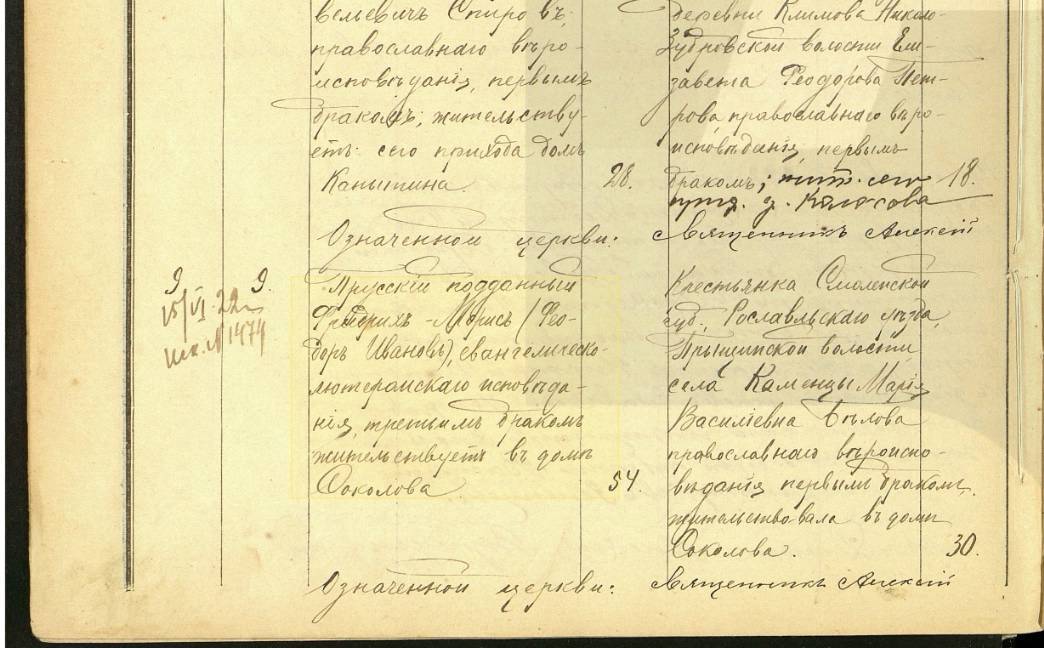 вельевичъ Спиро въ
православнаго вѣро-
исповѣданія, первымъ
бракомъ; жительству-
етъ сего прихода домъ
28.
деревни Климова Николо-
волости Ели-
завета Ѳеодорова Пет-
рова, православнаго вѣро-
исповѣданія, первымъ
бракомъ; жит. сего 18.
прих. д. Колосова
Означенной церкви: Священникъ Алексій
9 9.
15/VI 22 г
исх. № 1474
Прусскій подданный
Фридрихъ-Морисъ (Ѳео-
доръ Ивановъ), евангелическо-
лютеранскаго исповѣда-
нія, третьимъ бракомъ
жительствуетъ въ домѣ
Соколова 54.
Крестьянка Смоленской
губ., Рославльскаго уѣзда,
волости,
села Каменцы Марія
Василіевна Бѣлова
православнаго вѣроиспо-
вѣданія первымъ бракомъ,
жительствовала въ домѣ
Соколова. 30.
Означенной церкви: Священникъ Алексій